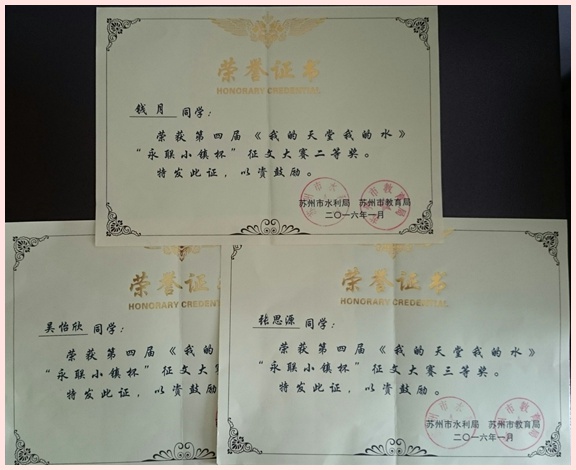 荣誉证书
HONORARY CREDENTIAL
钱月 同学：
荣获第四届《我的天堂我的水》
“永联小镇杯”征文大赛二等奖。
特发此证，以资鼓励。
苏州市水利局 苏州市教育局
二〇一六年一月
荣誉证
HONORARY CREDENT
吴怡欣 同学：
荣获第四届《我的
“永联小镇杯”征文大赛
特发此证，以资鼓励
荣誉证书
HONORARY CREDENTIAL
张思源 同学：
荣获第四届《我的天堂我的水》
“永联小镇杯”征文大赛三等奖。
特发此证，以资鼓励。
苏州市水利局 苏州市教育局
二〇一六年一月